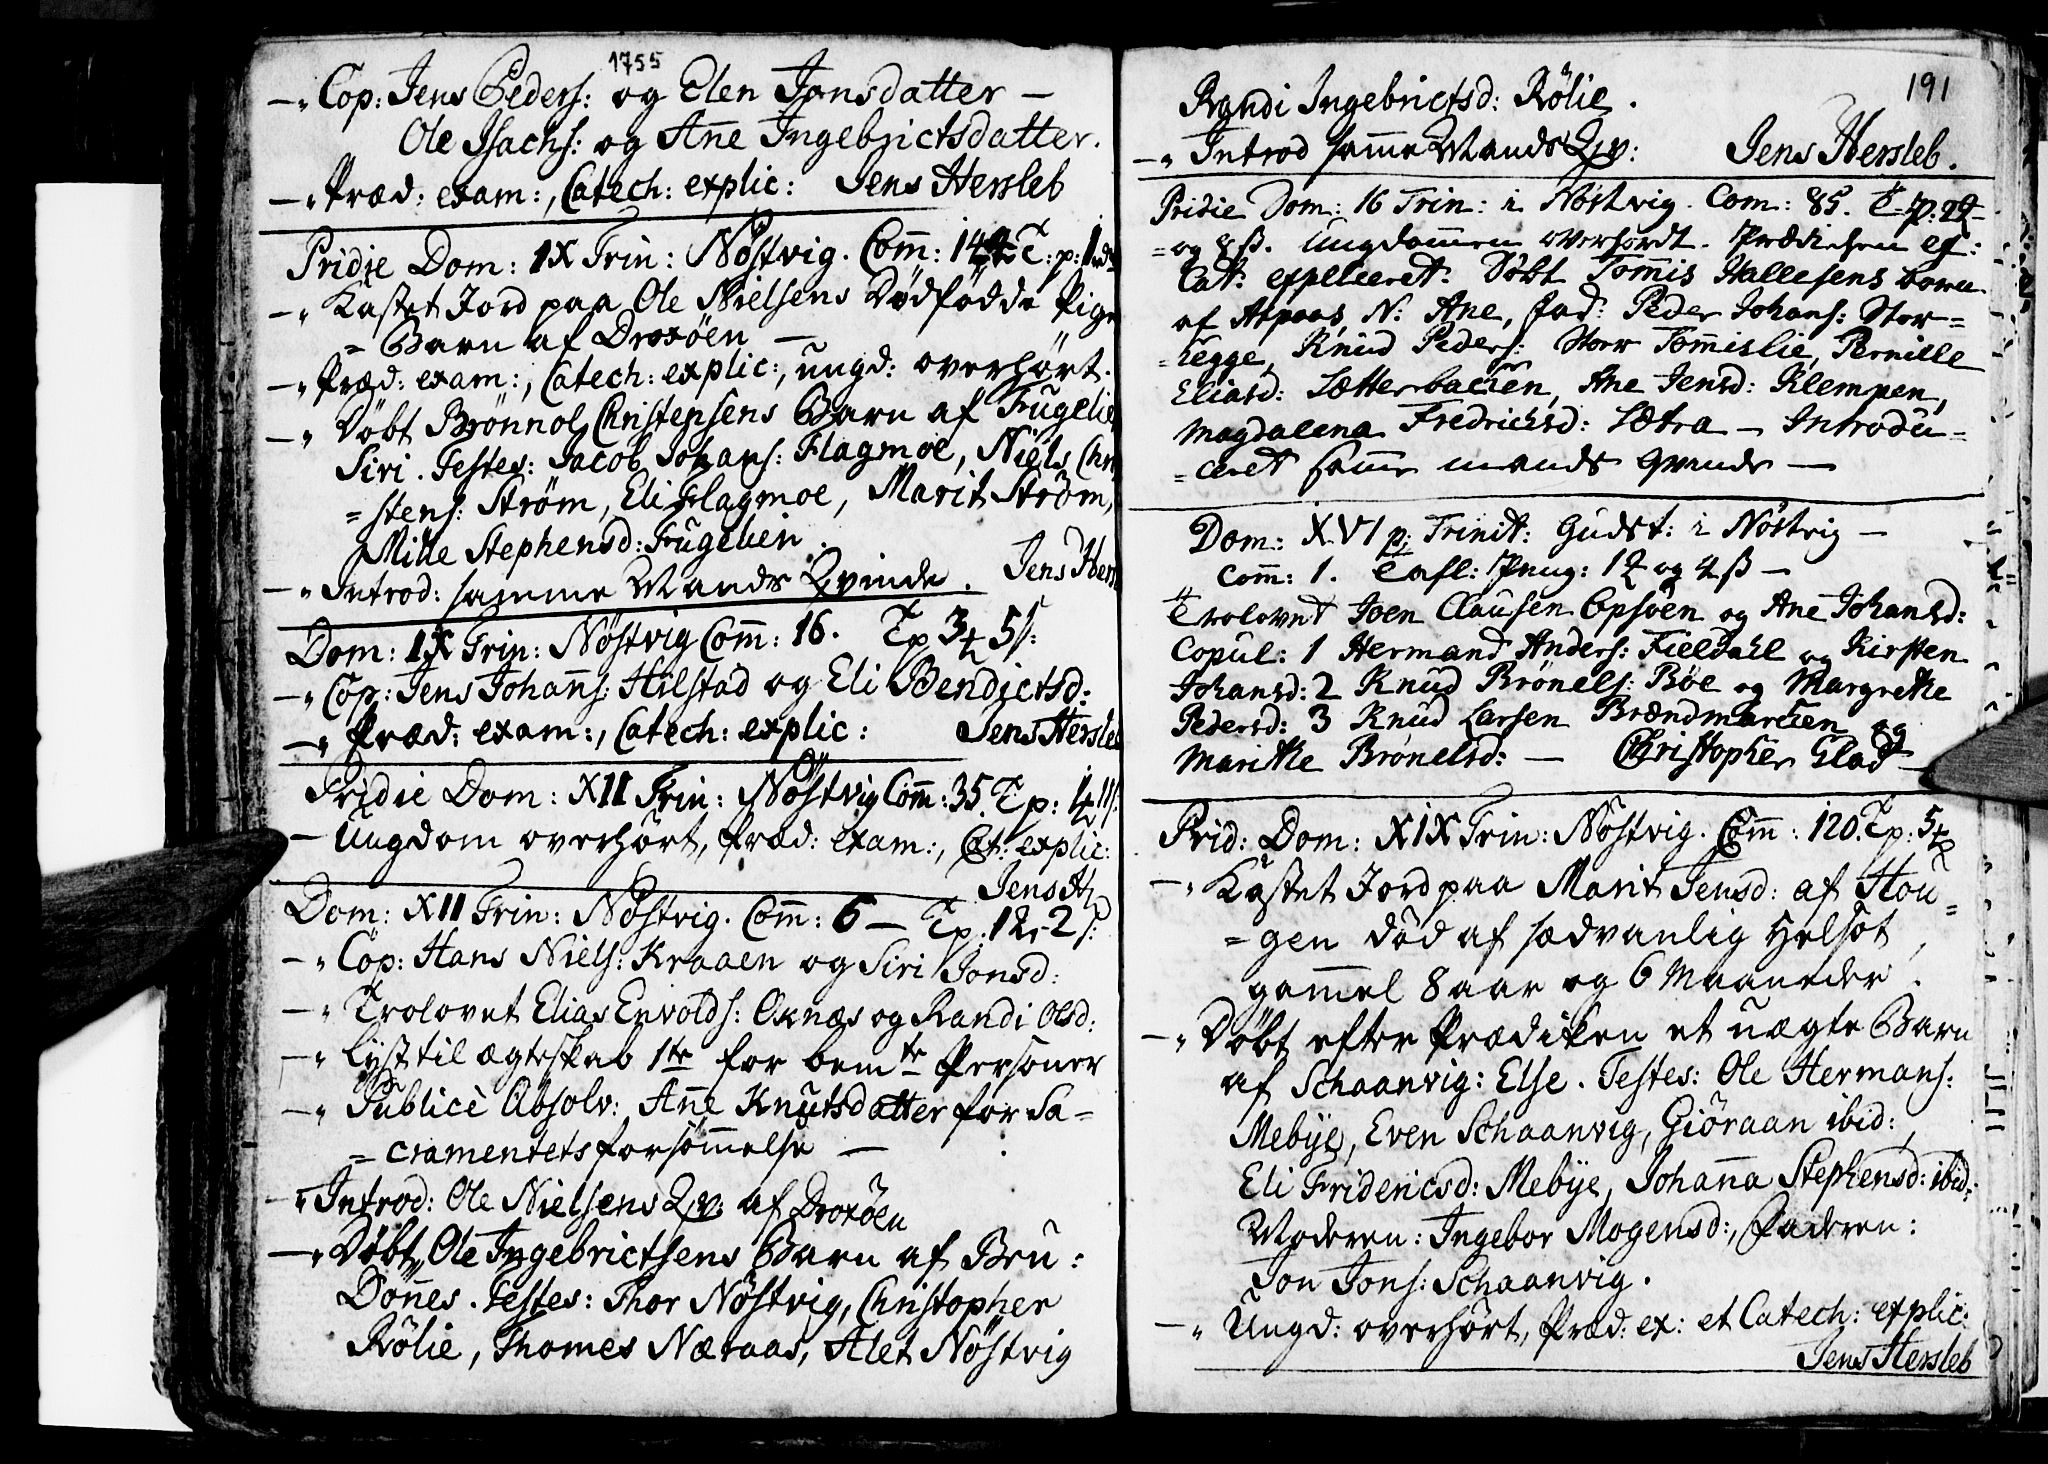 1755
—„ Cop: Jens Peders: og Elen Jonsdatter —
Ole Isachs: og Añe Ingebrictsdatter.
—„ Præd: exam:, Catech: explic: Jens Hersleb
Pridie Dom: IX Trin: Nöstvig. Com̃: 144 T: p: 1
—„ Kastet Jord paa Ole Nielsens Dödfödde Pige
= Barn af Droxöen —
—„ Præd: exam:, Catech: explic:, ungd: overhört.
—„ Döbt Brönnol Christensens Barn af Fugelie
Siri. Testes: Jacob Johans: Flagmoe, Niels Chri
= stens: Ström, Eli Flagmoe, Marit Ström,
Mille Stephensd: Fugelien.
—„ Introd: samme Mands Qvinde. Jens Hers
Dom: IX Trin: Nöstvig Com̃: 16. Tp 3 5ſ:
—„ Cop: Jens Johañs: Hilstad og Eli Bendictsd:
—„ Præd: exam:, Catech: explic: Jens Hersleb
Pridie Dom: XII Trin: Nöstvig Com̃: 35. Tp: 1 11ſ:
— Ungdom overhört, Præd: exam:, Cat: explic:
Jens H
Dom: XII Trin: Nöstvig. Com̃: 6 — Tp: 12 2ſ:
—„ Cop: Hans Niels: Kraaen og Siri Jonsd:
—„ Trolovet Elias Envolds: Oxnæs og Randi Olsd:
—„ Lyst til ægteskab 1te for bemte Personer
—„ Publicè Absolv: Añe Knutsdatter for Sa=
= cramentets forsömmelse —
—„ Introd: Ole Nielsens Qv: af Droxöen
—„ Döbt Ole Ingebrictsens Barn af Bru:
Döñes. Testes: Thor Nöstvig, Christopher
Rölie, Thomes Næraas, Alet Nöstvig
191
Randi Ingebrictsd: Rölie.
—„ Introd sam̃e Mands Qv: Jens Hersleb.
Pridie Dom: 16 Trin: i Nöstvig. Com: 85. T: p:
= og 8 ß. Ungdom̃en overhördt. Prædiken
Cat: expliceret. Döbt Tom̃is Hallesens barn
af Aspaas N: Ane, fad: Peder Johans: Stor=
= hegge, Knud Peders: Tom̃islie, Pernille
Eliasd: Sætterbacken, Ane Jensd: Klempen,
Magdalena Fredrichsd: Sætra — Introdu=
= ceret sam̃e mands qvinde —
Dom: XVI p: Trinit: Gudst: i Nöstvig —
Com̃: 1. Tafl: Peng: 1 og 4 ß —
Trolovet Joen Clausen Opsöen og Ane Johansd:
Copul: 1 Hermand Anders: Fieldahl og Kirsten
Johansd: 2 Knud Brönels: Böe og Margrethe
Pedersd: 3 Knud Larsen Brændmarcken og
Marithe Brönelsd: — Christopher Glad —
Prid: Dom: XIX Trin: Nöstvig. Com̃: 120. Tp: 5
—„ Kastet Jord paa Marit Jensd: af Hou=
= gen död af sædvanlig Helsot,
gam̃el 8 aar og 6 Maaneder.
—„ Döbt efter Prædiken et uægte Barn
af Schaanvig: Else. Testes: Ole Hermans:
Mebye, Even Schaanvig, Giöraan ibid:,
Eli Fridericsd: Mebye, Johañna Stephensd: ibid:
Moderen: Ingebor Mogensd:, Faderen:
Jon Jons: Schaanvig.
—„ Ungd: overhört, Præd: ex: et Catech: explic:
Jens Hersleb